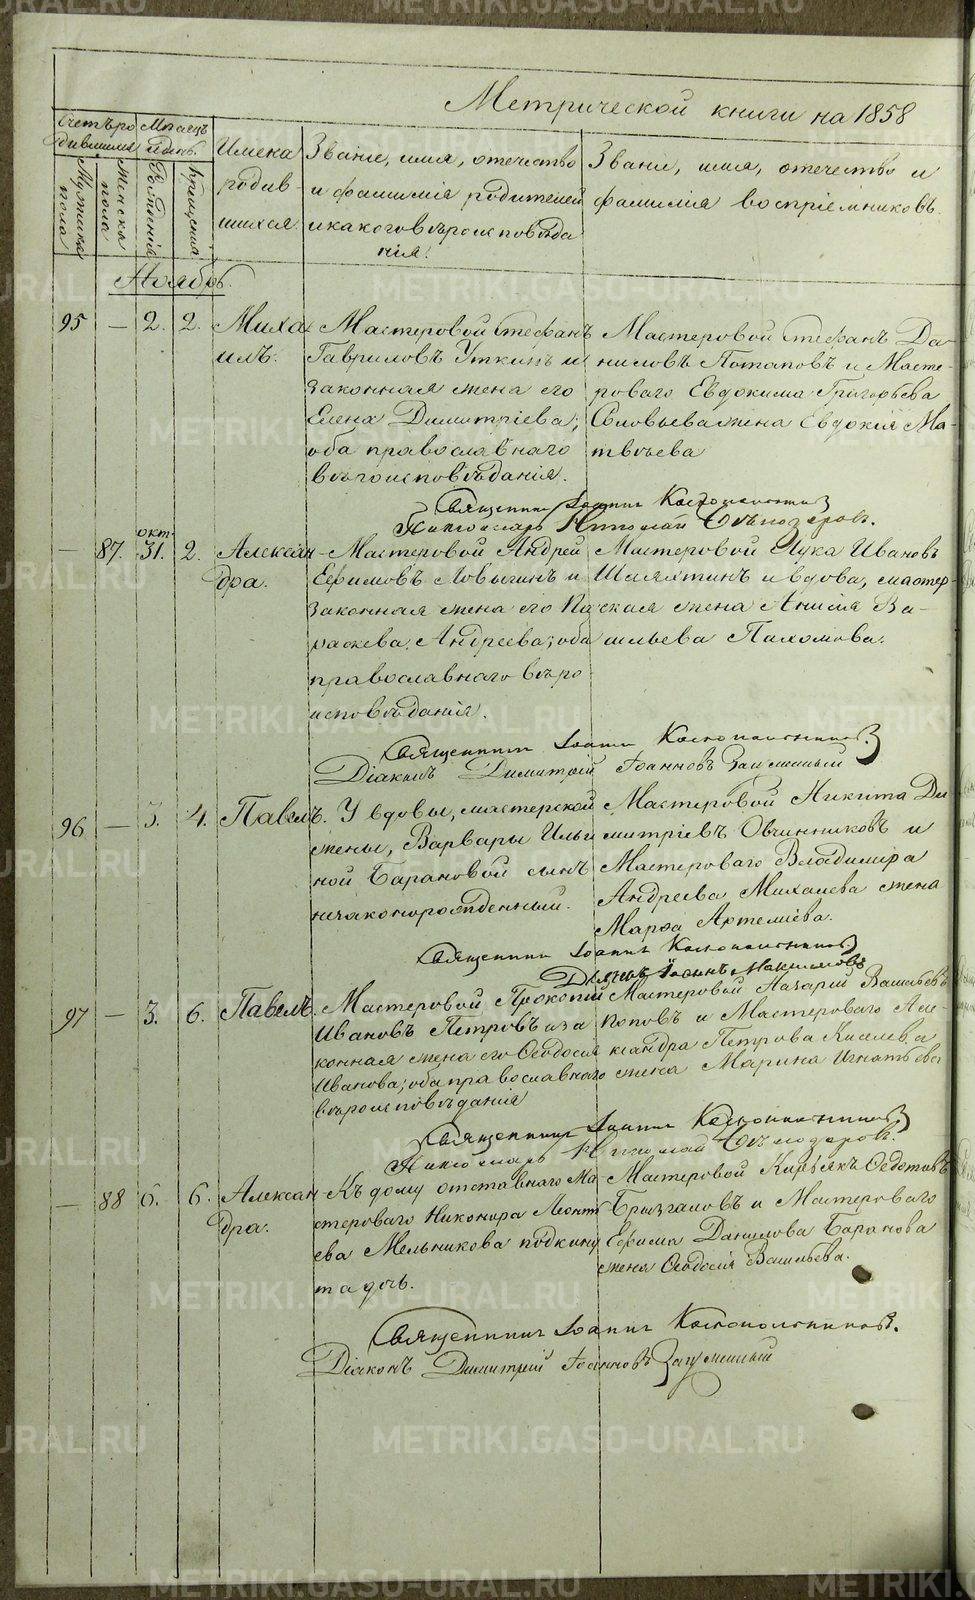 Метрической книги на 1858
Счетъ родившихся
Мужеска пола
Женска пола
Месяцъ и день
Рожденія
Крещенія
Имена родившихся.
Званіе, имя, отечество и фамилія родителей и какого вѣроисповѣданія.
Званіе, имя, отечество и фамилія воспріемниковъ.
Ноябрь.
95 — 2. 2. Михаилъ.
Мастеровой Стефанъ
Гавриловъ Уткинъ и
законная жена его
Елена Димитріева;
оба православнаго
вѣроисповѣданія.
Мастеровой Стефанъ Да-
ниловъ Потаповъ и Масте-
роваго Евдокима Григорьева
Соловьева жена Евдокія Ма-
твѣева
Священникъ Іоаннъ
Николай
— 87. окт. 31. 2. Александра.
Мастеровой Андрей
Ефимовъ Ловыгинъ и
законная жена его Па-
раскева Андреева; оба
православнаго вѣро
исповѣданія.
Мастеровой Лука Ивановъ
Шаляхтинъ и вдова, мастер-
ская жена Анисія Ва-
сильева Пахомова.
Священникъ Іоаннъ
Діаконъ Димитрій Іоанновъ
96 — 3. 4. Павелъ.
У вдовы, мастерской
жены, Варвары Ильи
ной Барановой сынъ
незаконорожденный.
Мастеровой Никита Ди
митріевъ Овчинниковъ и
Мастероваго Владиміра
Андреева Михалева жена
Марѳа Артеміева.
Священникъ Іоаннъ
97 — 3. 6. Павелъ.
Мастеровой Прокопій
Ивановъ Петровъ и за
конная жена его Ѳеодосія
Иванова; оба православнаго
вѣроисповѣданія
Мастеровой Назарій Васильевъ
Поповъ и Мастероваго Але-
ксандра Петрова Киселева
жена Марина Игнатьева
Священникъ Іоаннъ
Николай
— 88 6. 6. Александра.
Къ дому отставнаго Ма-
стероваго Никонора Леонть
ева Мельникова подкину
та дочь.
Мастеровой Кирьякъ Ѳедотовъ
Брызгаловъ и Мастероваго
Ефима Данилова Баранова
жена Ѳеодосія Васильева.
Священникъ Іоаннъ
Діаконъ Димитрій Іоанновъ
METRIKI.GASO-URAL.RU